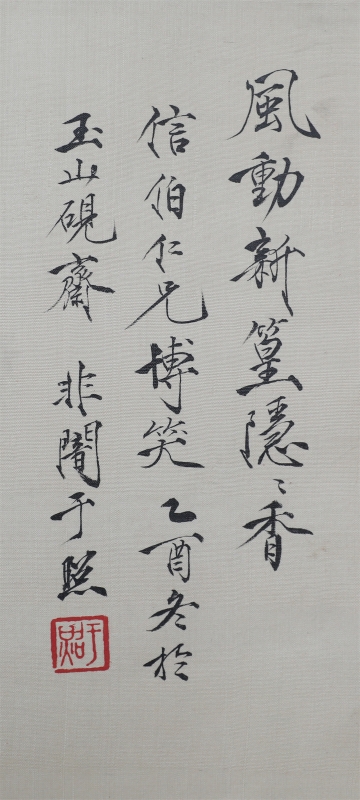 風動新篁隱〻香
信伯仁兄博笑乙酉冬於
玉山硯齋 非闇于照
于照